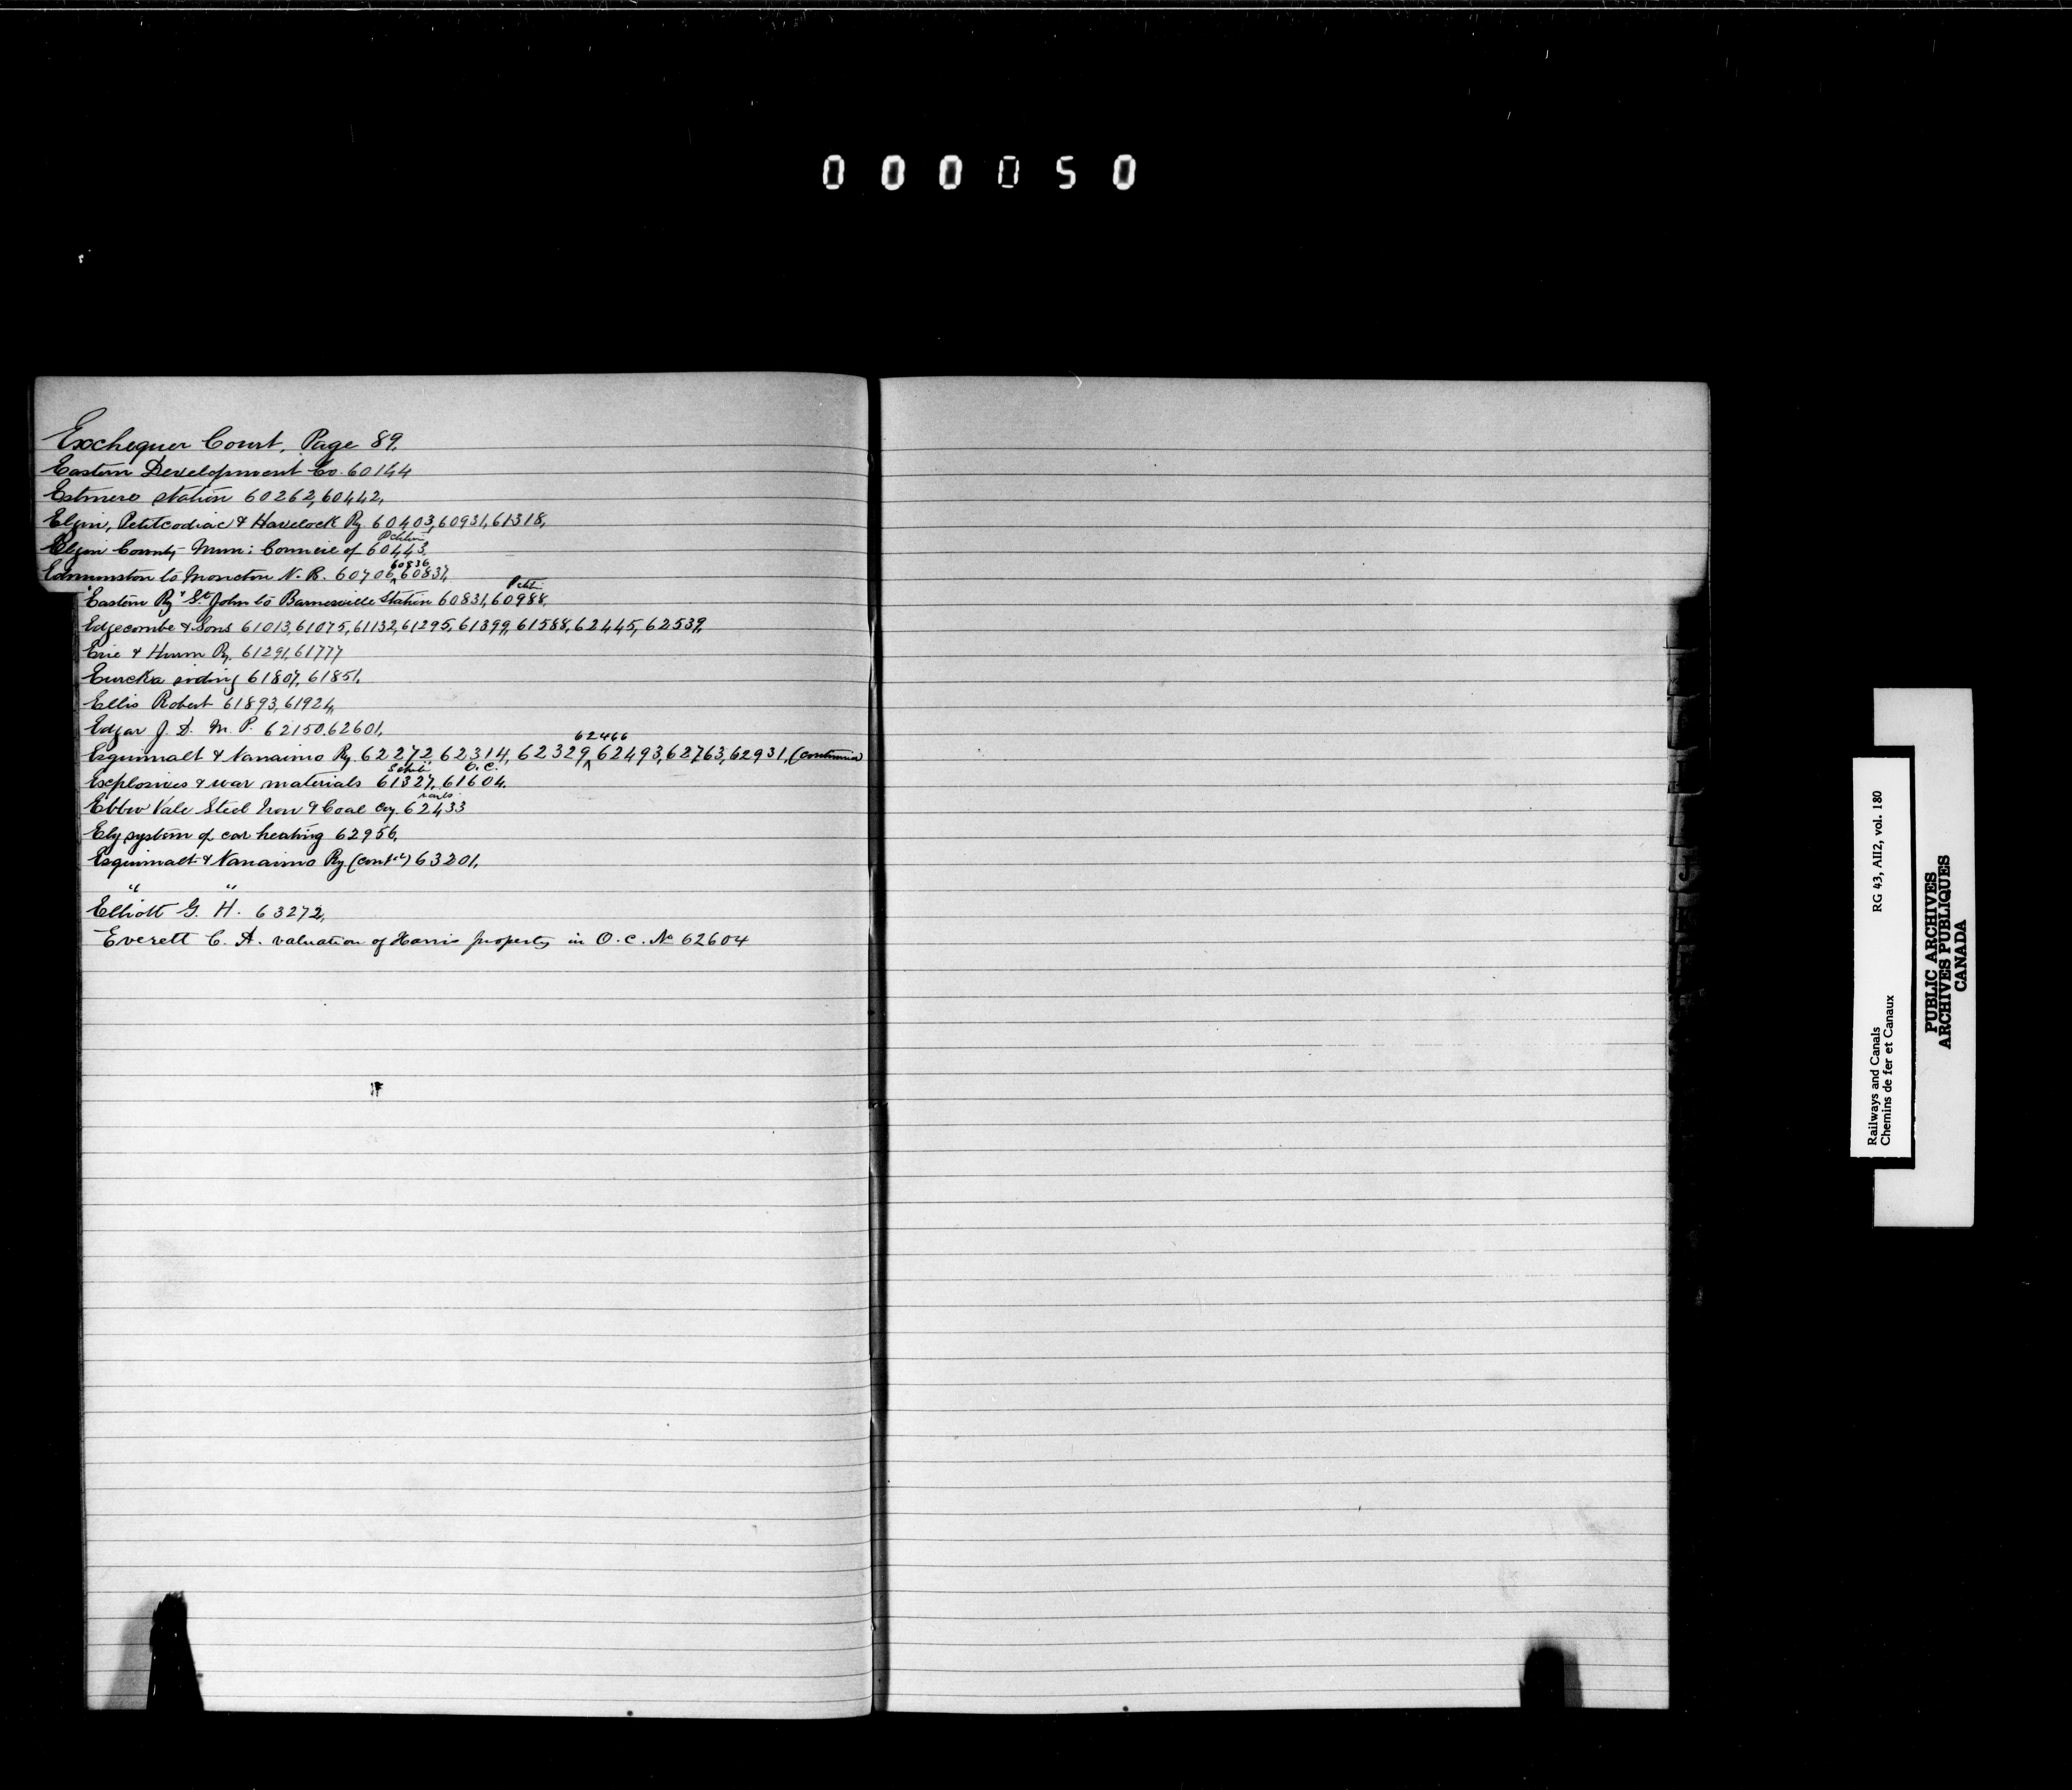 000050
Exchequer Court, Page 89.
Eastern Development Co. 60144
Estmere station 60262, 60442,
Elgin, Petitcodiac & Havelock Ry. 60403, 60931, 61318,
Petition
Elgin County Mun: Council of 60443,
60836
Edmunston to Moncton N. B. 60706, 60837,
Petn
"Eastern Ry" St. John to Barnesville Station 60831, 60988,
Edgecombe & Sons 61013, 61075, 61132, 61295, 61399, 61588, 62445, 62539,
Erie & Huron Ry. 61291, 61777
Eureka siding 61807, 61851,
Ellis Robert 61893, 61924,
Edgar J. D. M. P. 62150, 62601,
62466
Esquimalt & Nanaimo Ry. 62272, 62314, 62329, 62493, 62763, 62931, (continued
O.C.
Explosives & war materials 61327, 61604.
rails
Ebbw Vale Steel Iron & Coal Coy. 62433
Ely system of car heating 62956,
Esquimalt & Nanaimo Ry. (contd) 63201,
" "
Elliott G. H. 63272,
Everett C. A. valuation of Harris property in O.C. No 62604
Railways and Canals RG 43, AII2, vol. 180
Chemins de fer et Canaux
PUBLIC ARCHIVES
ARCHIVES PUBLIQUES
CANADA